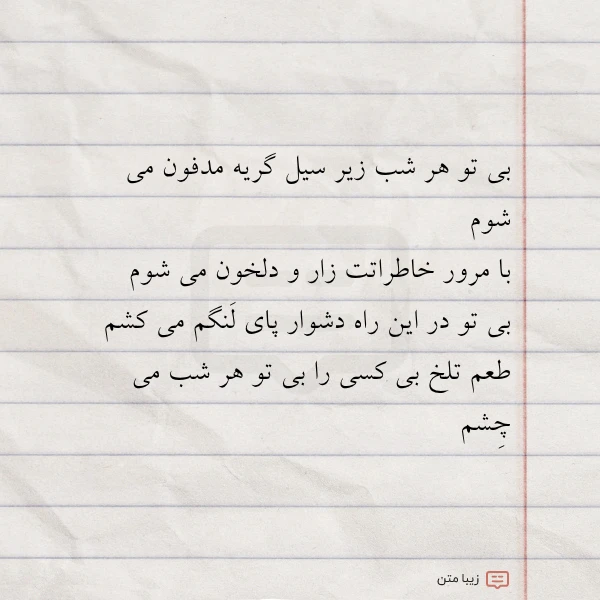 بی تو هر شب زیر سیل گریه مدفون می
شوم
با مرور خاطراتت زار و دلخون می شوم
بی تو در این راه دشوار پای لَنگم می کشم
طعم تلخ بی کسی را بی تو هر شب می
چِشم
زیبا متن